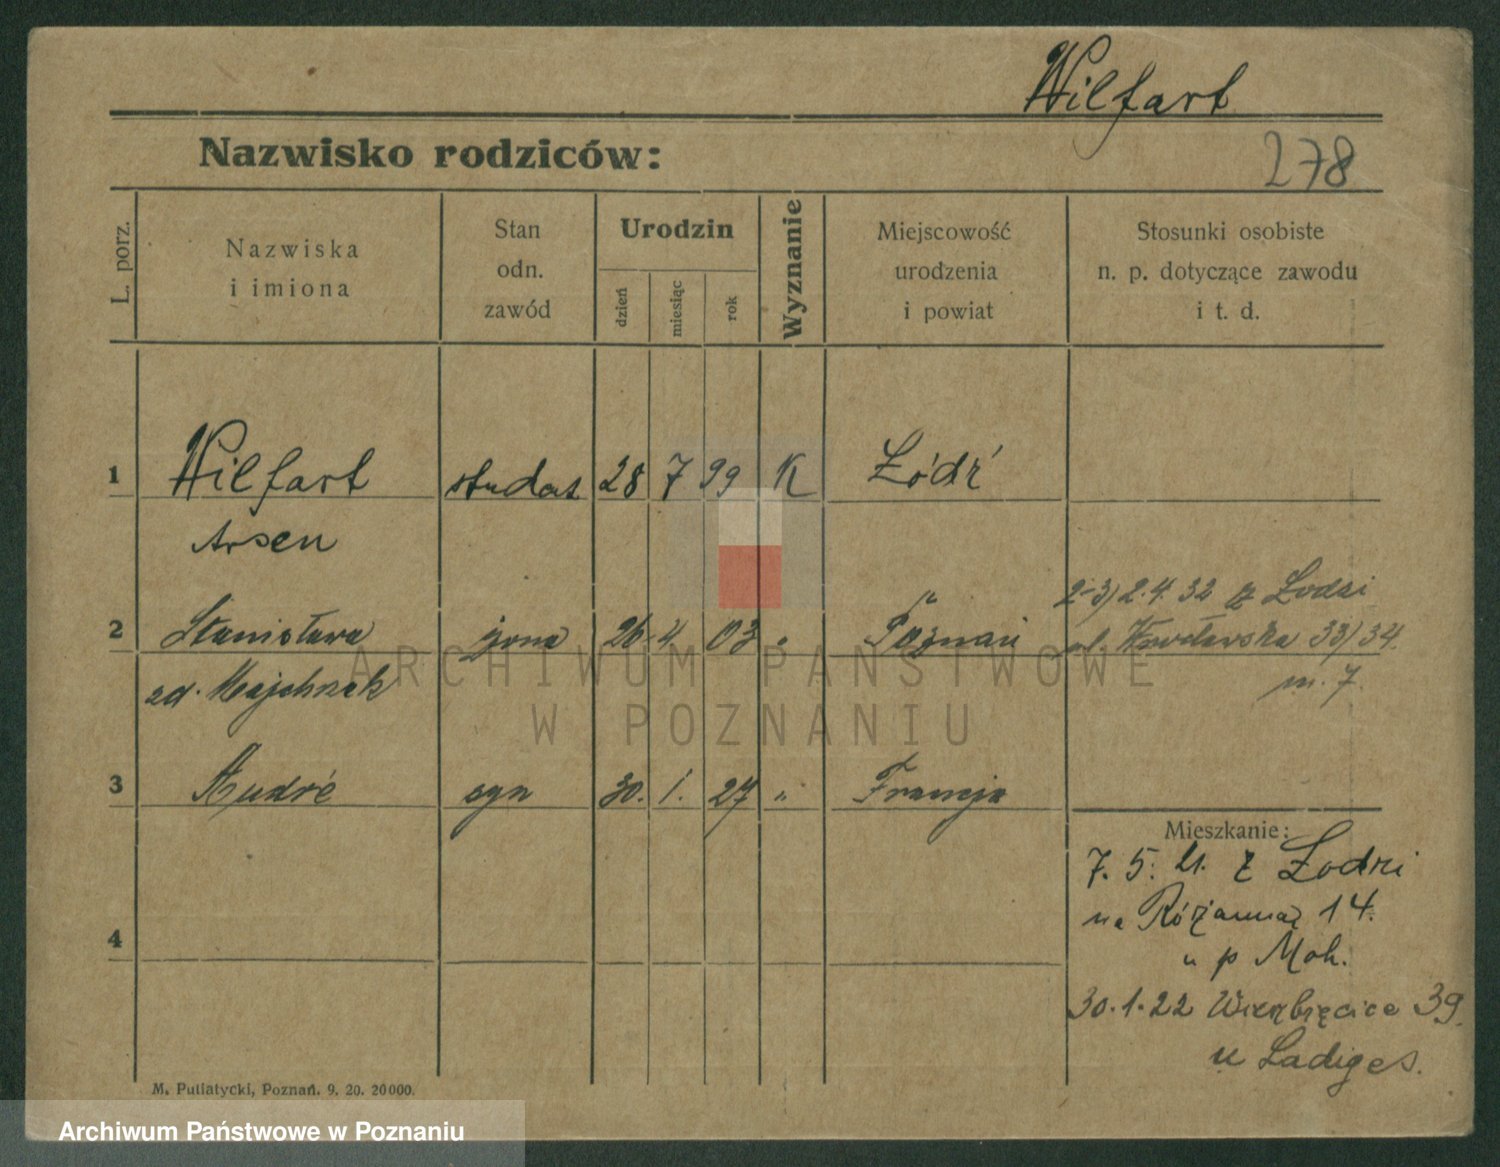 Wilfart
Nazwisko rodziców:
278
L. porz.
Nazwiska
i imiona
Stan
odn.
zawód
Urodzin
dzień
miesiąc
rok
Wyznanie
Miejscowość
urodzenia
i powiat
Stosunki osobiste
n. p. dotyczące zawodu
i t. d.
1 Wilfart student 28 7 99 K Łódź
Arsen
2-3) 2.4.32 z Łodzi
2 Stanisława żona 26. 4. 03 " Poznań ul. Wrocławska 33/34
m. 7
zd. Majchrzak
3 André syn 30. 1. 27 " Francja
Mieszkanie:
7. 5. 21. z Łodzi
na Różanną 14.
u p Moh.
4
30.1.22 Wierzbięcice 39.
u Ladiges.
M. Putiatycki, Poznań. 9. 20. 20000.
ARCHIWUM PAŃSTWOWE
W POZNANIU
Archiwum Państwowe w Poznaniu